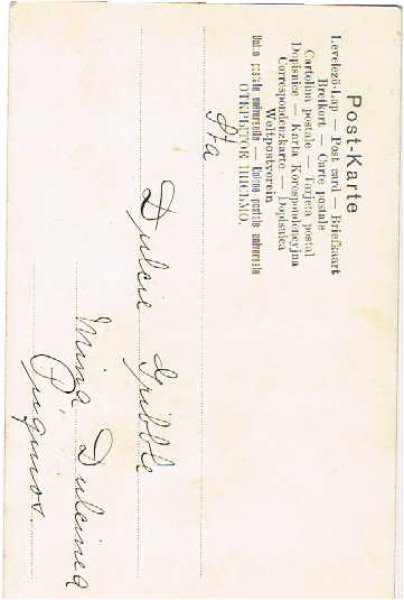 Post-Karte
Levelező-Lap — Post card — Briefkaart
Brefkort — Carte postale
Cartolina postale — Tarjeta postal
Dopisnice — Karta Korespondencyjna
Correspondenzkarte — Dopisnica
Weltpostverein
Union postale universelle — Unione postale universale
ОТКРЫТОЕ ПИСЬМО.
Sta
Dulcie Gribble
Mina Dulcinea